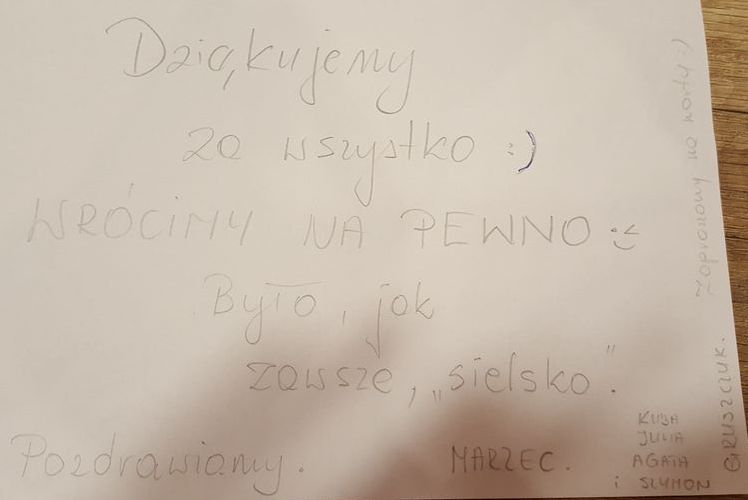 Dziąkujemy
za wszystko :)
WRÓCIMY NA PEWNO :)
Było, jak
zawsze, „sielsko".
Pozdrawiamy.
MARZEC.
KUBA
JULIA
AGATA
i SZYMON
GRUSZCZYK.
Zapraszamy na narty :)